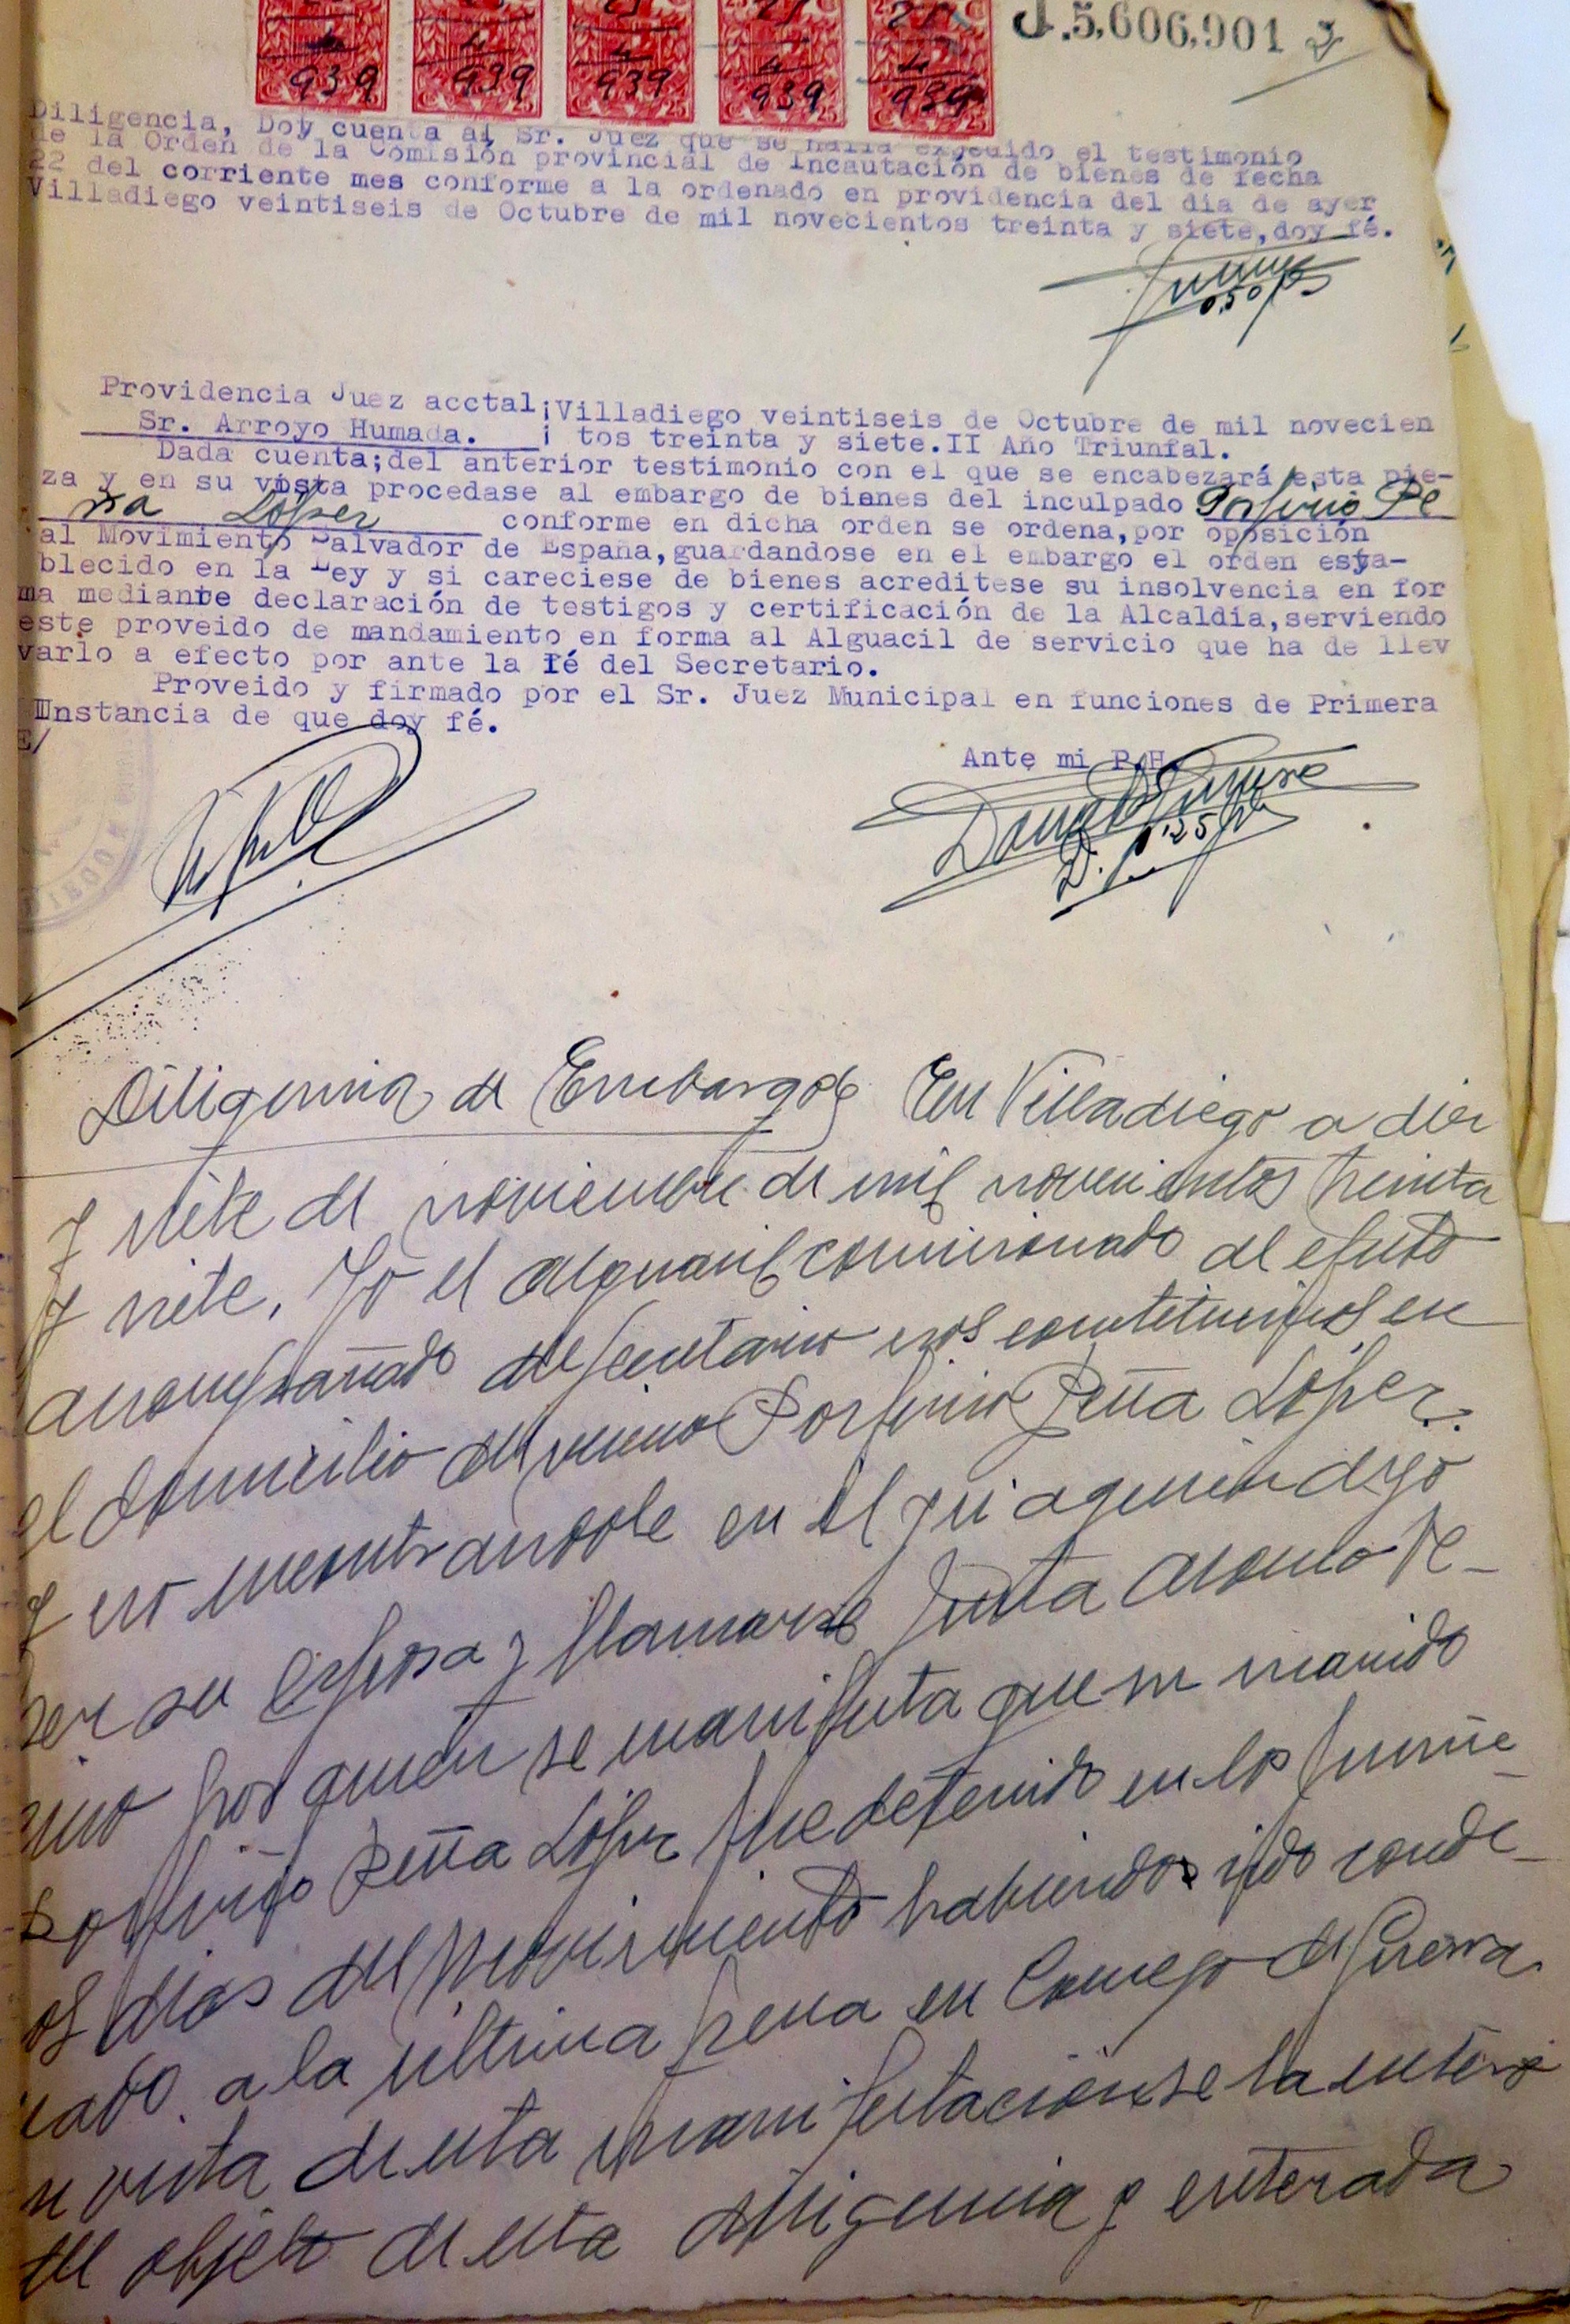 J.5,606,901
939 939 939 939 939
Diligencia, Doy cuenta al Sr. Juez que se halla expedido el testimonio
de la Orden de la Comisión provincial de Incautación de bienes de fecha
22 del corriente mes conforme a la ordenado en providencia del dia de ayer
Villadiego veintiseis de Octubre de mil novecientos treinta y siete,doy fé.
0,50
Providencia Juez acctal¡Villadiego veintiseis de Octubre de mil novecien
Sr. Arroyo Humada. ¡ tos treinta y siete.II Año Triunfal.
Dada cuenta;del anterior testimonio con el que se encabezará esta pie-
za y en su vista procedase al embargo de bienes del inculpado Porfirio Pe
ña López conforme en dicha orden se ordena,por oposición
al Movimiento Salvador de España,guardandose en el embargo el orden esta-
blecido en la Ley y si careciese de bienes acreditese su insolvencia en for
ma mediante declaración de testigos y certificación de la Alcaldia,serviendo
este proveido de mandamiento en forma al Alguacil de servicio que ha de llev
varlo a efecto por ante la fé del Secretario.
Proveido y firmado por el Sr. Juez Municipal en funciones de Primera
Instancia de que doy fé.
E/
Ante mi P.H.
Diligencia de Embargo En Villadiego a diez
y siete de noviembre de mil novecientos treinta
y siete. Yo el alguacil comisionado al efecto
acompañado del secretario nos constituimos en
el domicilio del vecino Porfirio Peña López.
y no encontrandole en el qui aquien dijo
ser su esposa y llamarse Justa
por quien se manifiesta que su marido
Porfirio Peña López fue detenido en los prime-
os dias del Movimiento habiendo sido conde-
nado a la ultima pena en Consejo de Guerra
n vista de esta manifestación se la entera
del objeto de esta diligencia y enterada